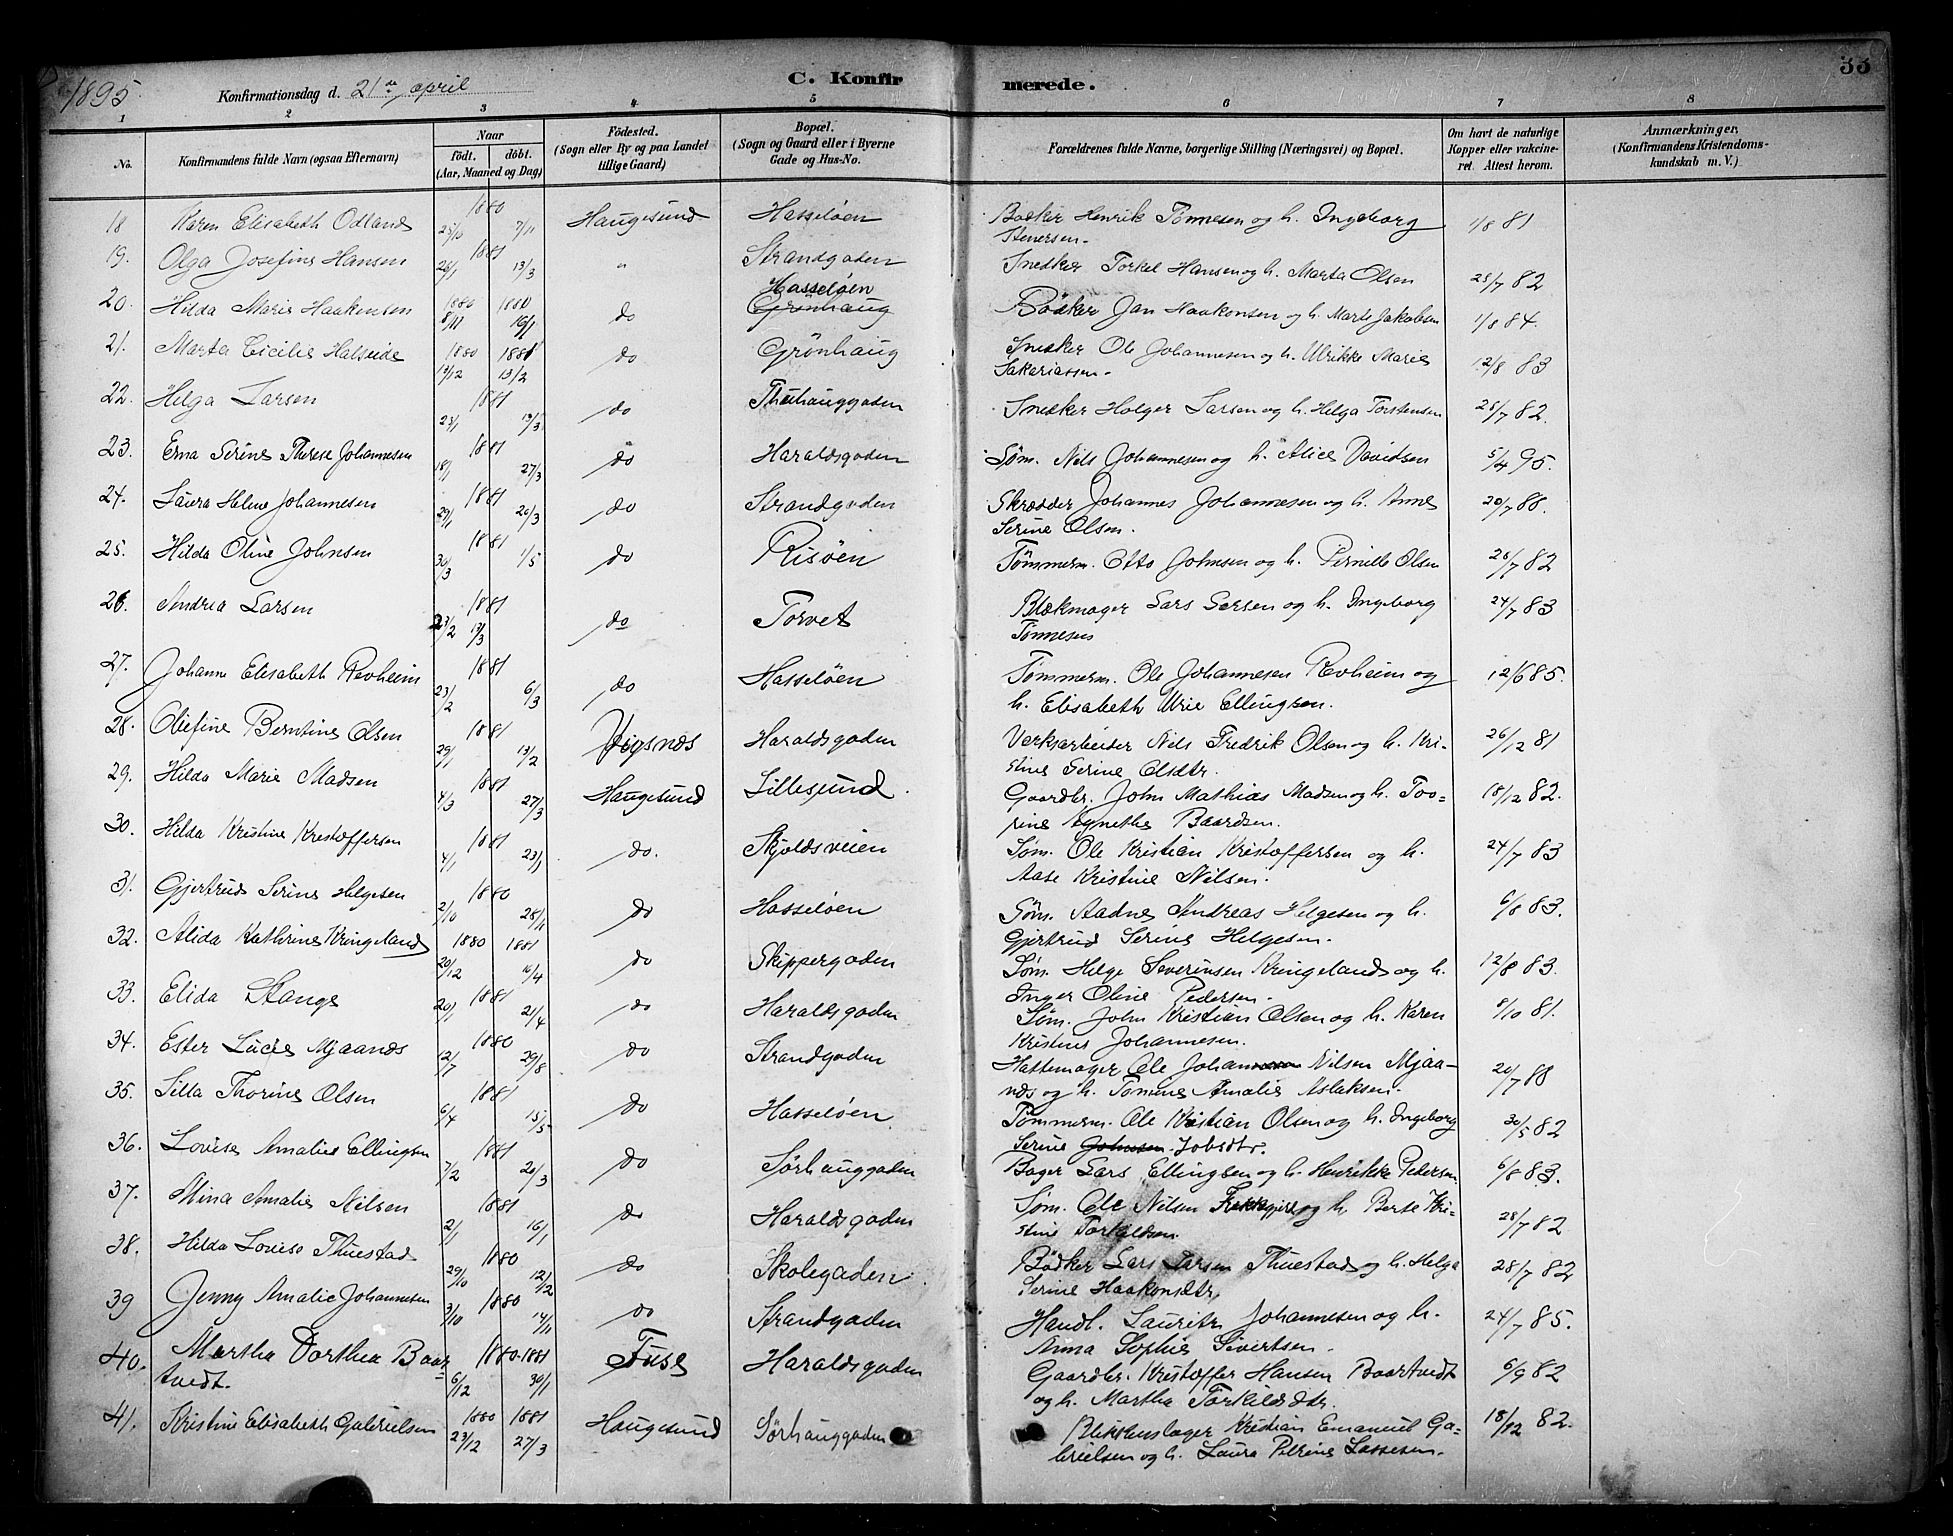 1895
Konfirmationsdag d. 21de april
C. Konfirmerede.
33
1 2 3 4 5 6 7 8
No. Konfirmandens fulde Navn (ogsaa Efternavn)
Naar født. døbt. (Aar, Maaned og Dag)
Fødested. (Sogn eller By og paa Landet tillige Gaard.)
Bopæl. (Sogn og Gaard eller i Byerne Gade og Hus-No.
Forældrenes fulde Navne, borgerlige Stilling (Næringsvei) og Bopæl.
Om havt de naturlige Kopper eller vakcineret. Attest herom.
Anmærkninger. (Konfirmandens Kristendomskundskab m. V.)
18 Karen Elisabeth Odland 1880 25/10 7/11 Haugesund Hasseløen Bødker Henrik Tønnesen og h. Ingeborg Stenersen. 1/8 81
19. Olga Josefine Hansen 1881 26/1 13/3 " Strandgaden Snedker Torkel Hansen og h. Marta Olsen 25/7 82
20. Hilda Marie Haakonsen 1880 8/11 1880 16/1 do Hasseløen Grønhaug Bödker Jan Haakonsen og h. Marte Jakobsen 1/8 84.
21. Marta Cicilie Halseide 1880 19/12 1881 13/2 do Grönhaug Snedker Ole Johannesen og h. Ulrikke Marie Sakariassen. 12/8 83
22. Helga Larsen 1881 23/1 13/3 do Thuhauggaden Snedker Holger Larsen og h. Helga Torstensen 25/7 82.
23. Erna Serine Therese Johannesen 1881 18/1 27/3 do Haraldsgaden Søm. Nils Johannesen og h. Alice Davidsen 5/4 95.
24. Laura Helene Johannesen 1881 29/1 20/3 do Strandgaden Skrædder Johannes Johannesen og h. Anne Serine Olsen. 20/7 88.
25. Hilda Oline Johnsen 1881 30/3 1/5 do Risöen Tömmerm. Otto Johnsen og h. Pernille Olsen 26/7 82
26. Andrea Larsen 1881 23/2 13/3 do Torvet Blokmager Lars Larsen og h. Ingeborg Tønnesen 24/7 83
27. Johanne Elisabeth Revheim 1881 23/2 6/3 do Hasseløen Tømmerm. Ole Johannesen Revheim og h. Elisabeth Urie Ellingsen. 12/6 85.
28. Oliefine Berntine Olsen 1881 29/1 13/2 Vigsnæs Haraldsgaden Verksarbeider Nils Fredrik Olsen og h. Kristine Serine Olsdtr. 26/12 81
29. Hilda Marie Madsen 1881 4/3 27/3 Haugesund Lillesund. Gaardbr. John Mathias Madsen og h. Torine Agnethe Baardsen. 18/12 82.
30. Hilda Kristine Kristoffersen 1881 4/1 23/1 do. Skjoldsveien Søm. Ole Kristian Kristoffersen og h. Aase Kristine Nilsen. 24/7 83
31. Gjertrud Serine Helgesen 1880 2/10 28/11 do Hasseløen Søm. Aadne Andreas Helgesen og h. Gjertrud Serine Helgesen. 6/8 83.
32. Alida Kathrine Kringeland 1880 20/12 1881 10/4 do Skippergaden Søm. Helge Severinsen Kringeland og h. Inger Oline Pedersen. 12/8 83.
33. Elida Stange 1881 20/1 21/4 do Haraldsgaden Søm. John Kristian Olsen og h. Karen Kristine Johannesen. 8/10 81.
34. Ester Lucie Mjaanæs 1880 12/7 29/8 do Strandgaden Hattemager Ole Johan Nilsen Mjaanæs og h. Tomine Amalie Aslaksen. 20/7 88
35. Silla Thorine Olsen 1881 6/4 15/5 do Hasseløen. Tømmerm. Ole Kristian Olsen og h. Ingeborg Serine Johnsen. Jobsdtr. 30/5 82
36. Lovise Amalie Ellingsen 1881 7/2 20/3 do Sørhauggaden Bager Lars Ellingsen og h. Henrikke Pedersen. 6/8 83.
37. Mina Amalie Nilsen 1881 2/1 16/1 do Haraldsgaden Søm. Ole Nilsen og h. Berte Kristine Torkildsen. 28/7 82
38. Hilda Lovise Thuestad 1880 29/10 12/2 do Skolegaden. Bödker Lars Larsen Thuestad og h. Helga Serine Haakonsdtr. 28/7 82
39 Jenny Amalie Johannesen 1880 3/10 14/11 do Strandgaden Handl. Lauritz Johannesen og h. Anna Sophie Sivertsen. 24/7 85.
40. Martha Dorthea Baartvedt. 1880 6/12 1881 30/1 Fuse Haraldsgaden Gaardbr. Kristoffer Hansen Baartvedt og h. Martha Torkildsdtr. 6/9 82
41. Kristine Elisabeth Gabrielsen 1880 23/12 1881 27/3 Haugesund Sørhauggaden Blikkenslager Kristian Emanuel Gabrielsen og h. Laura Petrine Lassesen. 18/12 82.